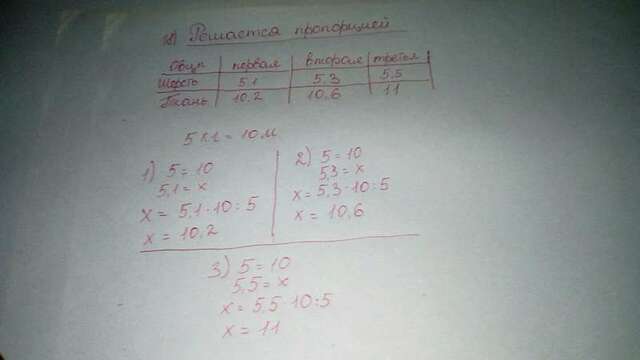 18) Решается пропорцией
Общп первая вторая третья
Шерсть 5,1 5,3 5,5
Ткань 10,2 10,6 11
5 кг = 10 м
1) 5 = 10
5,1 = x
x = 5,1 · 10 : 5
x = 10,2
2) 5 = 10
5,3 = x
x = 5,3 · 10 : 5
x = 10,6
3) 5 = 10
5,5 = x
x = 5,5 · 10 : 5
x = 11